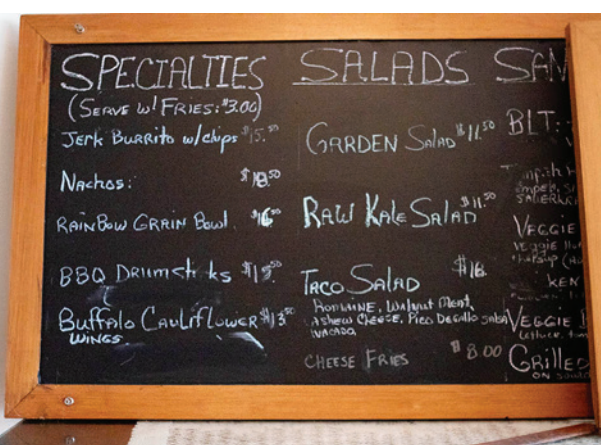 SPECIALTIES
(SERVE w/ FRIES: $3.00)
JERK BURRITO w/chips $15.50
NACHOS: $18.50
RAINBOW GRAIN BOWL $16.50
BBQ DRUMSticks
BUFFALO CAULIFLOWER $13.50
WINGS
SALADS
GARDEN SALAD $11.50
RAW KALE SALAD $11.50
TACO SALAD $16.
ROMAINE, WALNUT MEAT,
CASHEW CHEESE, PICO DEGALLO SALSA
AVACADO,
CHEESE FRIES $8.00
SAN
BLT:
VEGGIE
VEGGIE
KEN
VEGGIE
Lettuce,
GRILLED
ON